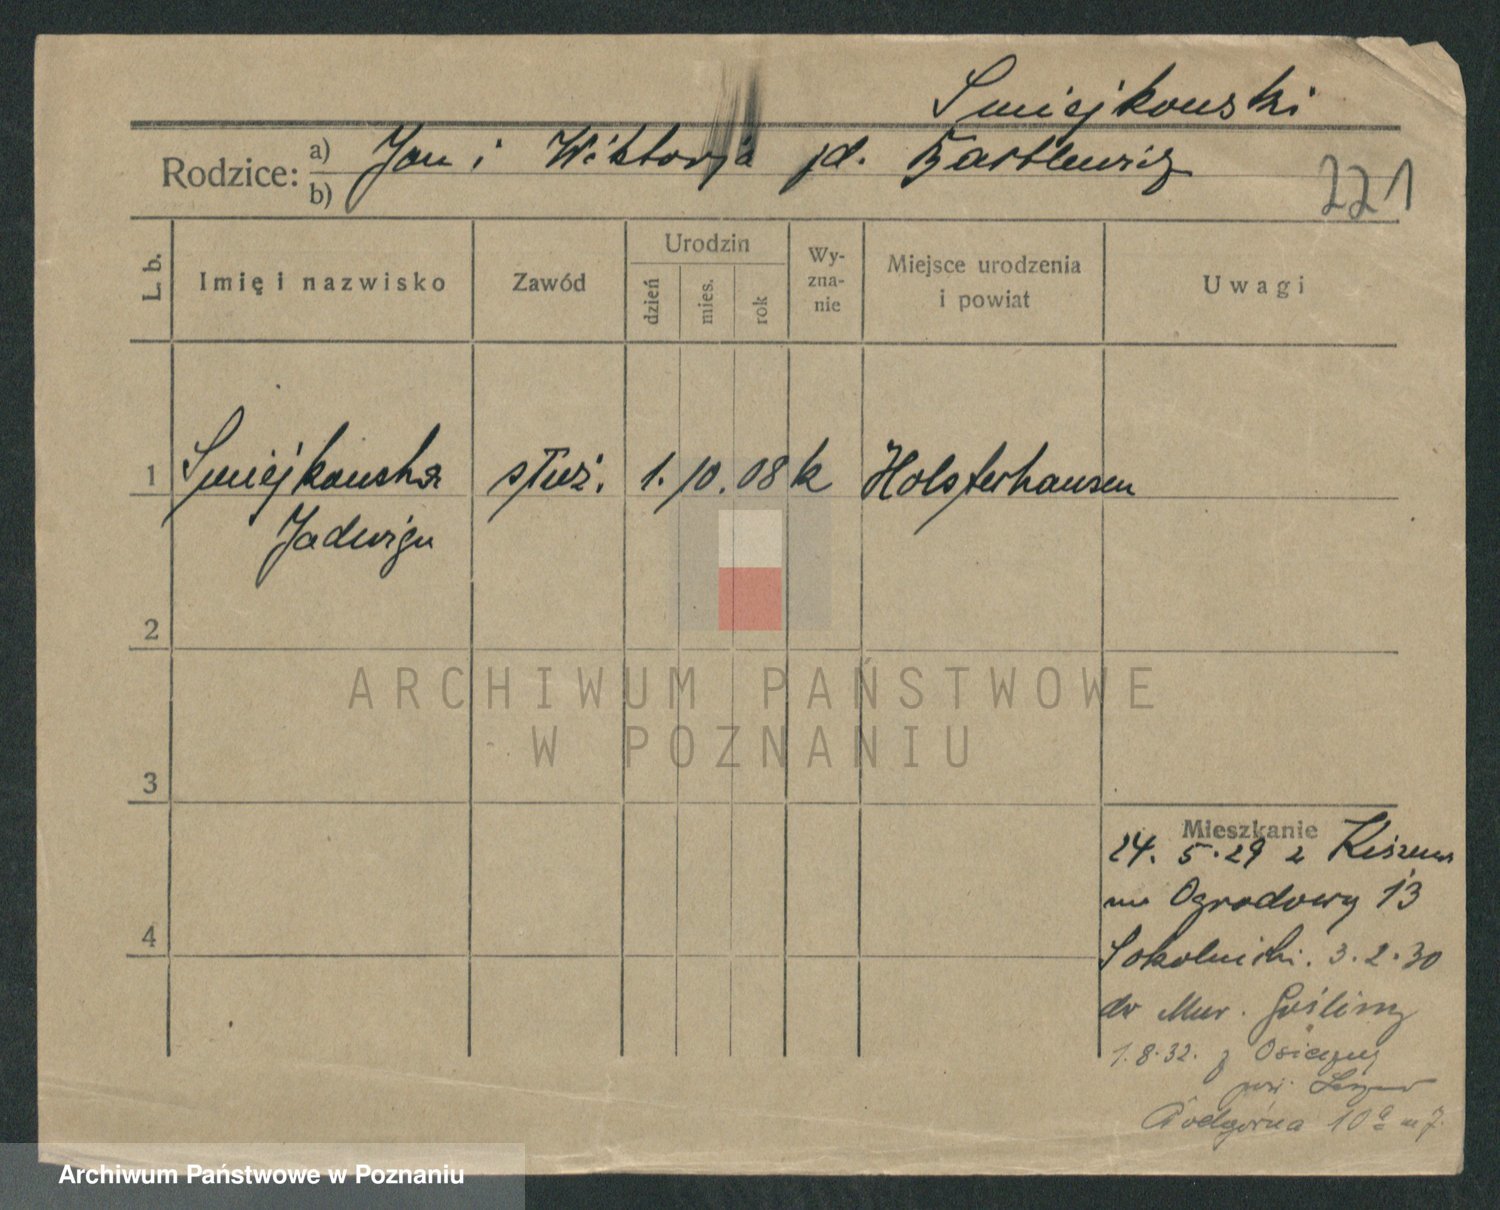 Smiejkowski
Rodzice: a) Jan i Wiktorja zd. Bartlewicz
b)
221
L. b. Imię i nazwisko Zawód Urodzin dzień mies. rok Wy-zna-nie Miejsce urodzenia i powiat Uwagi
1 Smiejkowska służ. 1. 10. 08 k Holsterhausen
Jadwiga
2
3
4
Mieszkanie
24. 5. 29 z
na Ogrodowy 13
Sokolnicki. 3. 2. 30
do Mur. Gośliny
1. 8. 32. z Osieczny
pow.
Podgórna 10a m 7.
ARCHIWUM PAŃSTWOWE
W POZNANIU
Archiwum Państwowe w Poznaniu